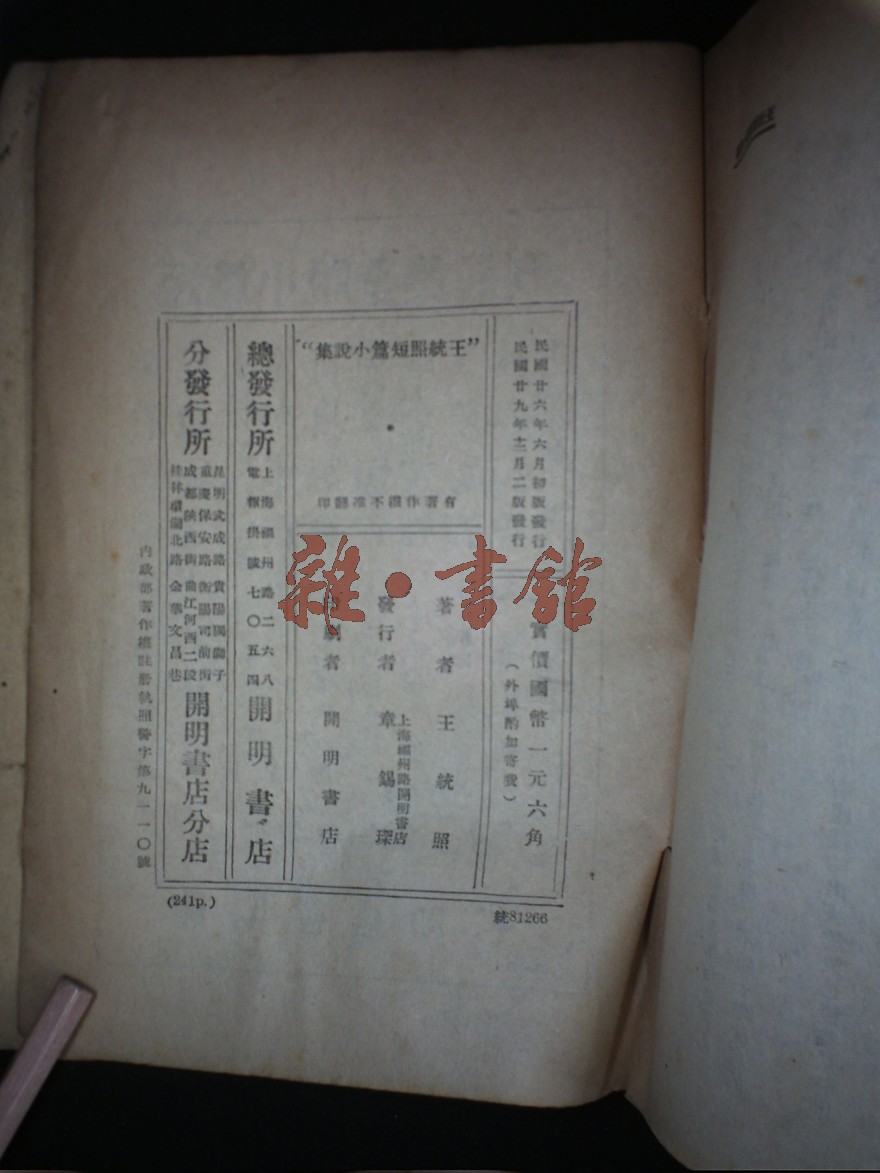 民國廿六年六月初版發行
民國廿九年十二月二版發行
實價國幣一元六角
(外埠酌加寄費)
"王統照短篇小說集"
有著作權不准翻印
著者 王統照
發行者 章錫琛
上海福州路開明書店
印刷者 開明書店
總發行所
上海福州路二六八
電報掛號七〇五四
開明書店
分發行所
昆明武成路 貴陽獅子
重慶保安路 衡陽司前街
成都陝西街 曲江河西二段
桂林環湖北路 金華文昌巷
開明書店分店
內政部著作權註冊執照警字第九一一〇號
(241p.)
統81266
雜·書館